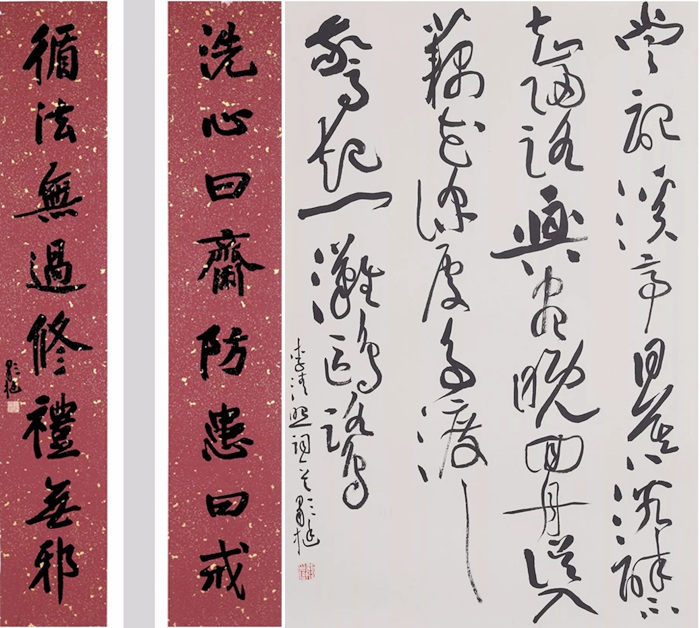 洗心曰齋防患曰戒
循法無過修禮無邪
常記溪亭日暮沉醉不
知歸路興盡晚回舟誤入
藕花深處爭渡
驚起一灘鷗鷺
李清照詞